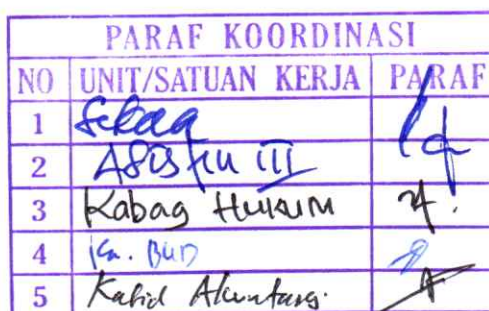 PARAF KOORDINASI
NO UNIT/SATUAN KERJA PARAF
1 Sekda
2 Asisten III
3 Kabag Hukum
4 Ka. BUD
5 Kabid Akuntansi